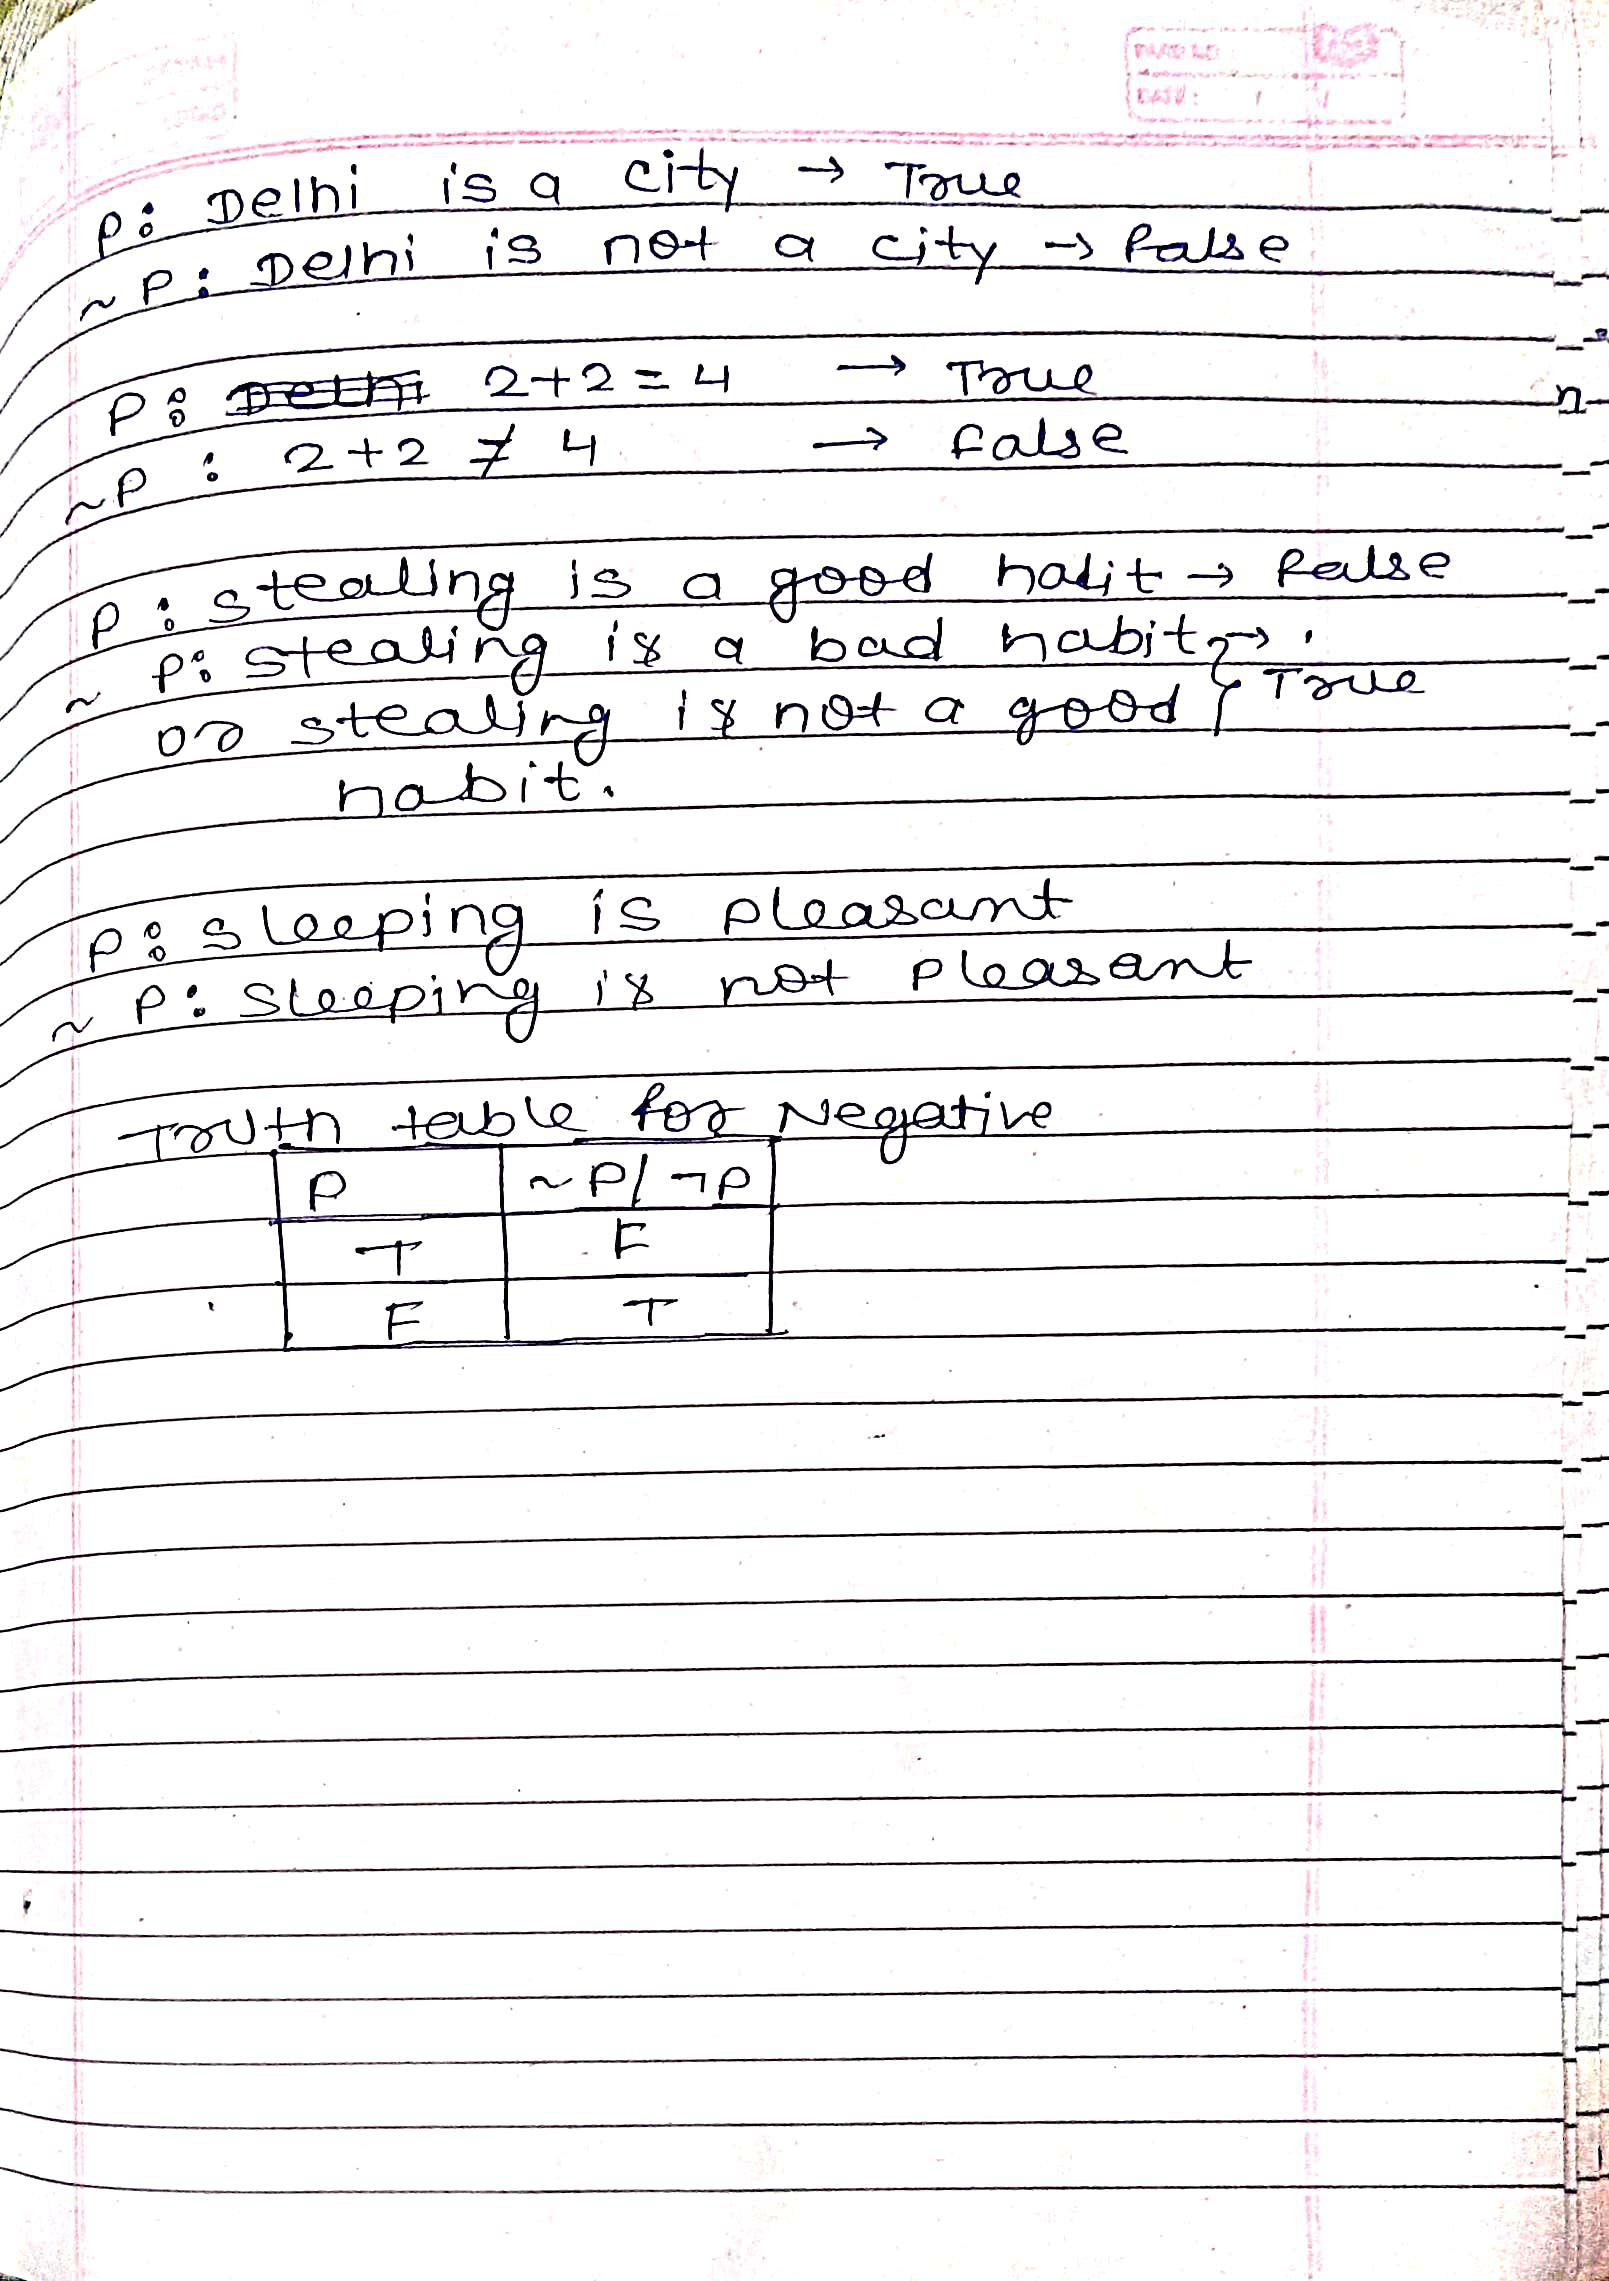 PAGE NO:
DATE: / /
P: Delhi is a city → True
~P: Delhi is not a city → False
P: Delhi 2+2=4 → True
~P: 2+2 ≠ 4 → False
P: stealing is a good habit → False
~P: stealing is a bad habit } →
or stealing is not a good } True
habit.
P: sleeping is pleasant
~P: sleeping is not pleasant
Truth table for Negative
P ~P/¬P
T F
F T